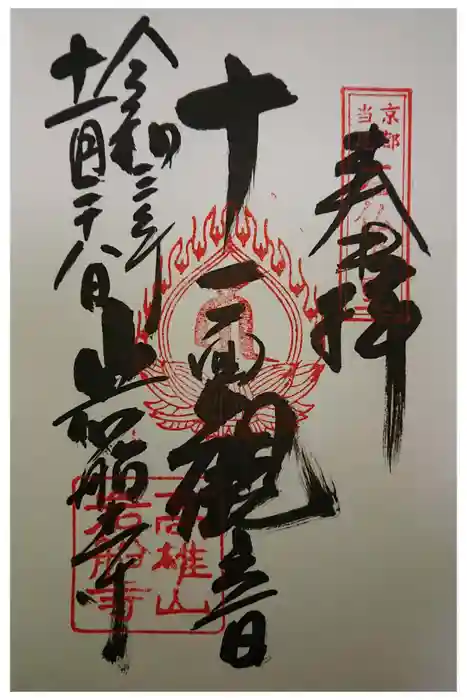 京都
当
奉拝
十一面觀音
令和三年
十一月二十八日
岩船寺
高雄山
岩船寺